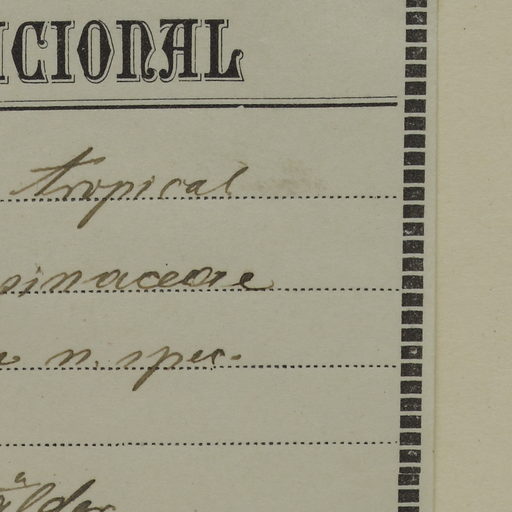 ICIONAL
tropical
sinaceae
n. spec.
älder